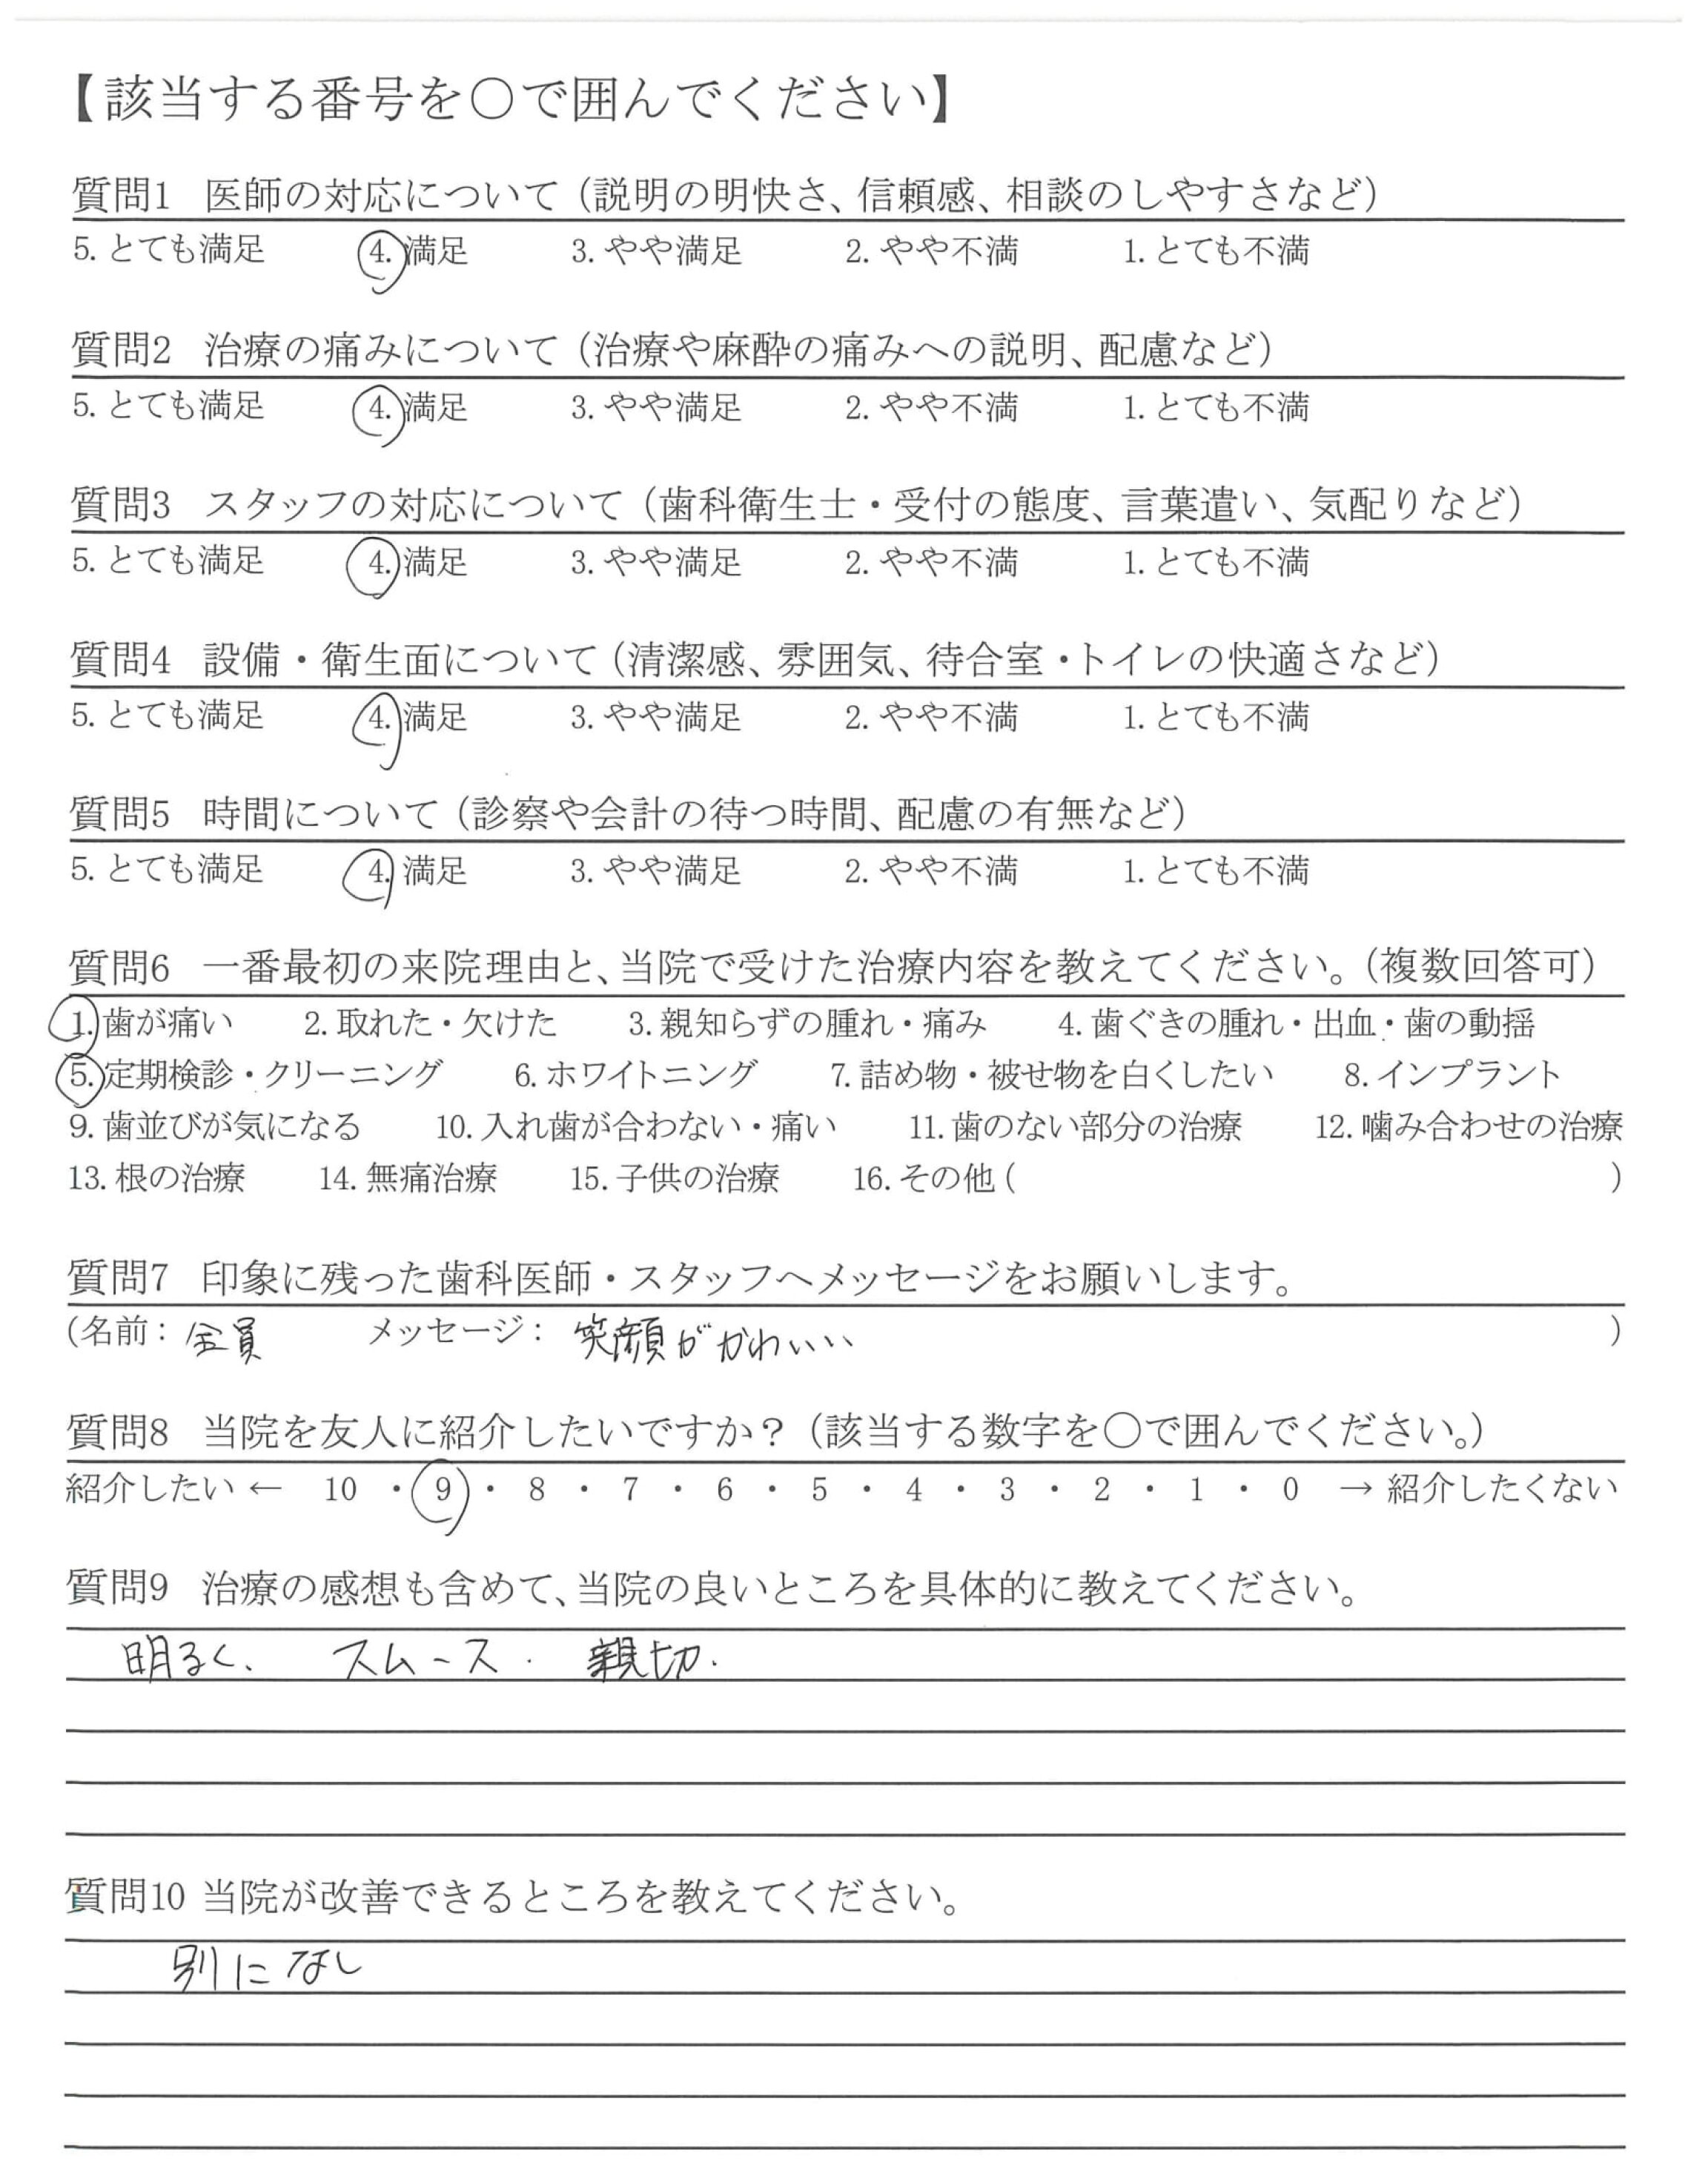 【該当する番号を○で囲んでください】
質問1 医師の対応について（説明の明快さ、信頼感、相談のしやすさなど）
5. とても満足 4. 満足 3. やや満足 2. やや不満 1. とても不満
質問2 治療の痛みについて（治療や麻酔の痛みへの説明、配慮など）
5. とても満足 4. 満足 3. やや満足 2. やや不満 1. とても不満
質問3 スタッフの対応について（歯科衛生士・受付の態度、言葉遣い、気配りなど）
5. とても満足 4. 満足 3. やや満足 2. やや不満 1. とても不満
質問4 設備・衛生面について（清潔感、雰囲気、待合室・トイレの快適さなど）
5. とても満足 4. 満足 3. やや満足 2. やや不満 1. とても不満
質問5 時間について（診察や会計の待つ時間、配慮の有無など）
5. とても満足 4. 満足 3. やや満足 2. やや不満 1. とても不満
質問6 一番最初の来院理由と、当院で受けた治療内容を教えてください。（複数回答可）
1. 歯が痛い 2. 取れた・欠けた 3. 親知らずの腫れ・痛み 4. 歯ぐきの腫れ・出血・歯の動揺
5. 定期検診・クリーニング 6. ホワイトニング 7. 詰め物・被せ物を白くしたい 8. インプラント
9. 歯並びが気になる 10. 入れ歯が合わない・痛い 11. 歯のない部分の治療 12. 噛み合わせの治療
13. 根の治療 14. 無痛治療 15. 子供の治療 16. その他（ ）
質問7 印象に残った歯科医師・スタッフへメッセージをお願いします。
（名前： 全員 メッセージ： 笑顔がかわいい ）
質問8 当院を友人に紹介したいですか？（該当する数字を○で囲んでください。）
紹介したい ← 10 ・ 9 ・ 8 ・ 7 ・ 6 ・ 5 ・ 4 ・ 3 ・ 2 ・ 1 ・ 0 → 紹介したくない
質問9 治療の感想も含めて、当院の良いところを具体的に教えてください。
明るく、 スムース. 親切.
質問10 当院が改善できるところを教えてください。
別になし